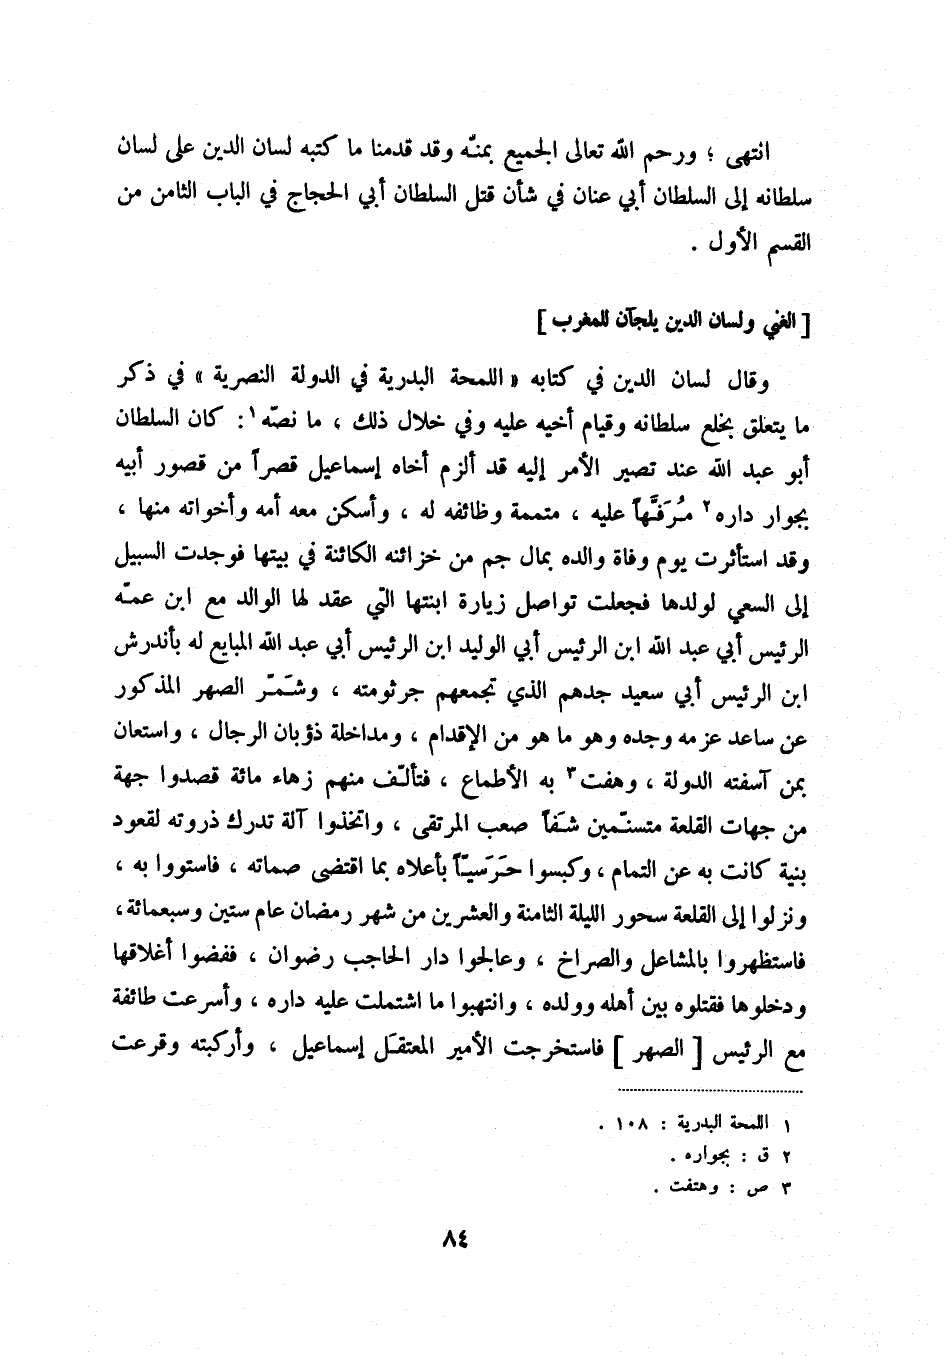 انتهى ؛ ورحم الله تعالى الجميع بمنّه وقد قدمنا ما كتبه لسان الدين على لسان
سلطانه إلى السلطان أبي عنان في شأن قتل السلطان أبي الحجاج في الباب الثامن من
القسم الأول .
[ الغني ولسان الدين يلجآن للمغرب ]
وقال لسان الدين في كتابه « اللمحة البدرية في الدولة النصرية » في ذكر
ما يتعلق بخلع سلطانه وقيام أخيه عليه وفي خلال ذلك ، ما نصّه ١ : كان السلطان
أبو عبد الله عند تصير الأمر إليه قد ألزم أخاه إسماعيل قصراً من قصور أبيه
بجوار داره ٢ مُرَفَّهاً عليه ، متممة وظائفه له ، وأسكن معه أمه وأخواته منها ،
وقد استأثرت يوم وفاة والده بمال جم من خزائنه الكائنة في بيتها فوجدت السبيل
إلى السعي لولدها فجعلت تواصل زيارة ابنتها التي عقد لها الوالد مع ابن عمّه
الرئيس أبي عبد الله ابن الرئيس أبي الوليد ابن الرئيس أبي عبد الله المبايع له بأندرش
ابن الرئيس أبي سعيد جدهم الذي تجمعهم جرثومته ، وشَمّر الصهر المذكور
عن ساعد عزمه وجده وهو ما هو من الإقدام ، ومداخلة ذؤبان الرجال ، واستعان
بمن آسفته الدولة ، وهفت ٣ به الأطماع ، فتألّف منهم زهاء مائة قصدوا جهة
من جهات القلعة متسنّمين شَفاً صعب المرتقى ، واتخذوا آلة تدرك ذروته لقعود
بنية كانت به عن التمام ، وكبسوا حَرَسيّاً بأعلاه بما اقتضى صماته ، فاستووا به ،
ونزلوا إلى القلعة سحور الليلة الثامنة والعشرين من شهر رمضان عام ستين وسبعمائة،
فاستظهروا بالمشاعل والصراخ ، وعالجوا دار الحاجب رضوان ، ففضوا أغلاقها
ودخلوها فقتلوه بين أهله وولده ، وانتهبوا ما اشتملت عليه داره ، وأسرعت طائفة
مع الرئيس [ الصهر ] فاستخرجت الأمير المعتقَل إسماعيل ، وأركبته وقرعت
١ اللمحة البدرية : ١٠٨ .
٢ ق : بجواره .
٣ ص : وهتفت .
٨٤